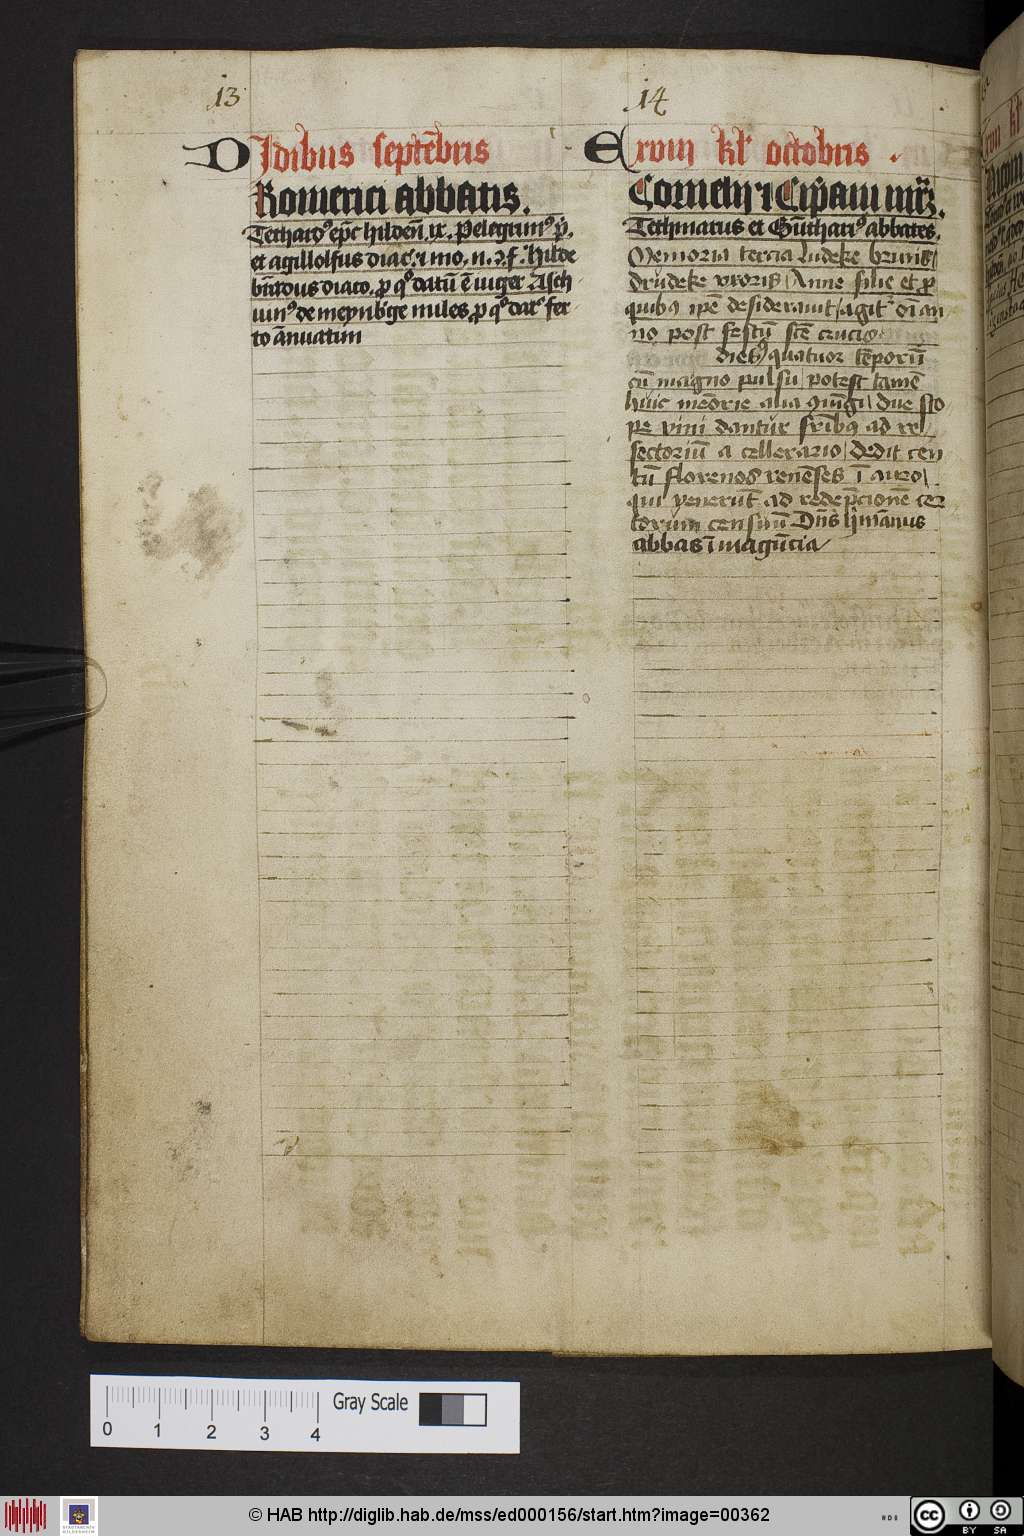 13
D Idibus septe̅bris
Romerici abbatis.
Tethard9 ep̅c hilden̅. ix. Pelegrim9 p̅r.
et agillolfus diac̅. ⁊ mo. n. ↄ. f. Hilde
bra̅dus diaco. p̱ q̊ datu̅ e̅ iuger Asch
win9 de meynb̅ge miles p̱ q̊ dat² fer
to an̅uatim
14
E xviii kl̅ octobris .
Cornelii ⁊ Cip̅ani mr̅z.
Tethmarus et Gu̅thari9 abbates.
Memoria tercia Ludeke brunss
drudeke vxoris Anne filie et p̱
quib9 ip̅e desiderauit agit² o̅i an
no post festu̅ sc̅e crucis
dieb9 quatuor te̅poru̅
cu̅ magno pulsu potest tame̅
huic me̅orie alia ↄiu̅gi due sto
pe vini dantur fr̅ib9 ad re
fectoriu̅ a cellerario dedit cen
tu̅ florenos rene̅ses i̅ auro
qui veneru̅t ad rede̅pcione̅ cer
torum censuu̅ Dn̅s h̅ma̅nus
abbas i̅ magu̅cia
Gray Scale
0 1 2 3 4
© HAB http://diglib.hab.de/mss/ed000156/start.htm?image=00362
cc BY SA